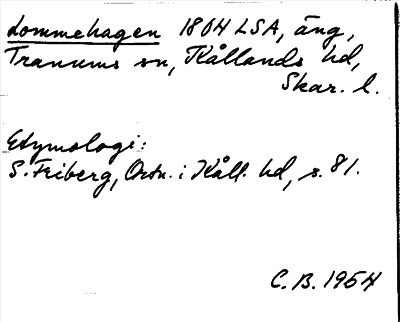 Lommehagen 1804 LSA, äng,
Tranums sn, Kållands hd,
Skar. l.
Etymologi:
S. Friberg, Ortn. i Kåll. hd, s. 81.
C.B. 1964